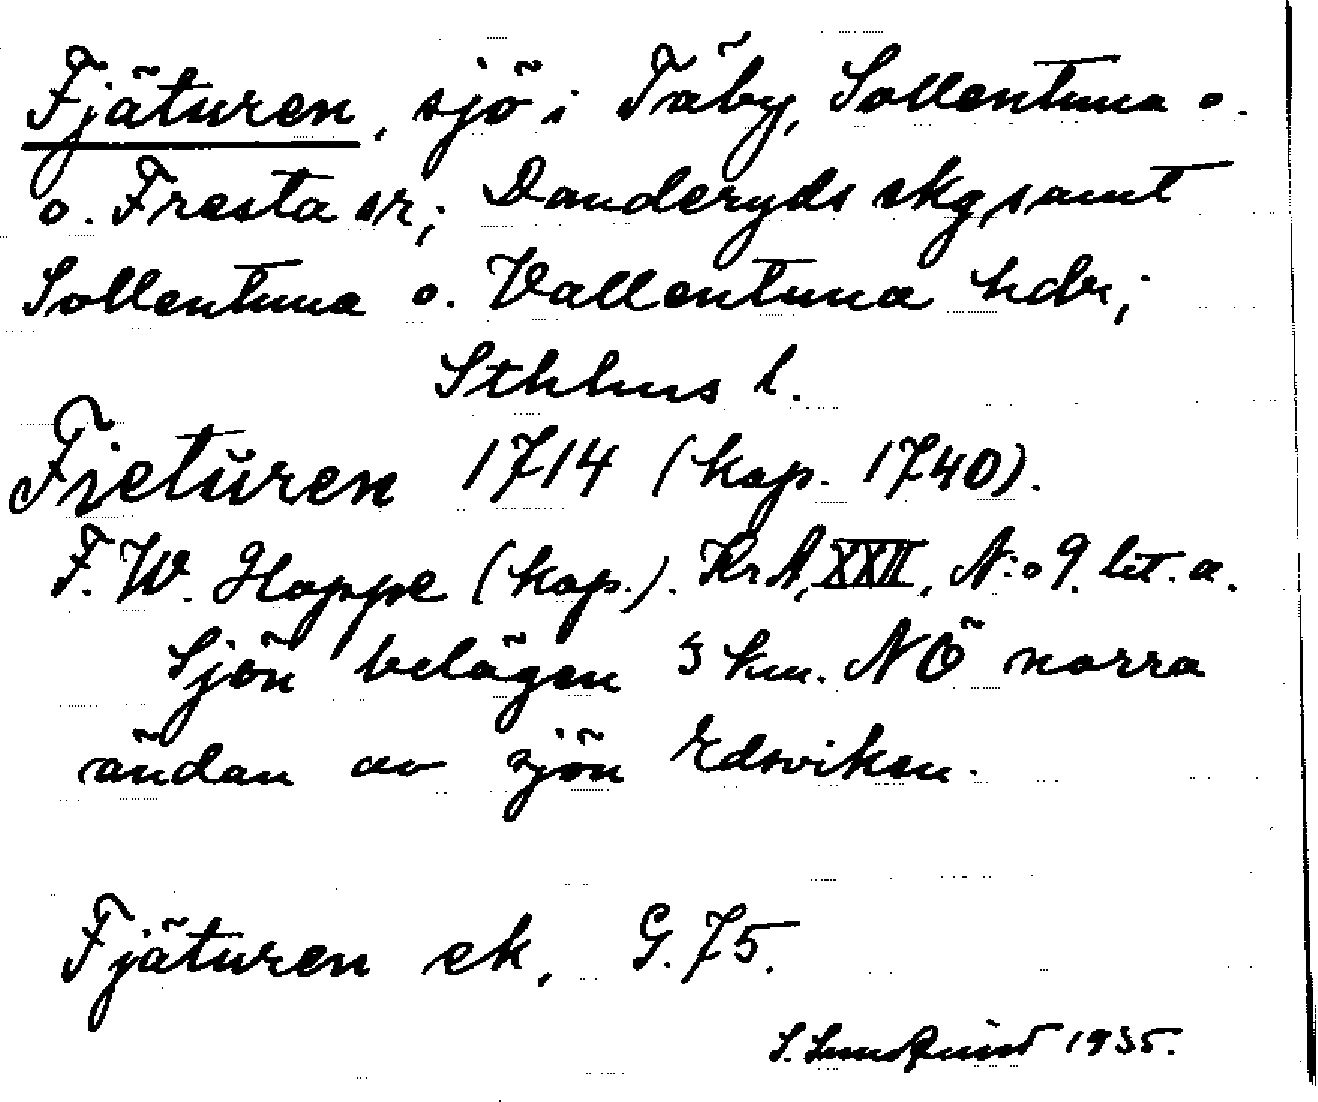 Fjäturen, sjö i Täby, Sollentuna o.
o. Fresta sr; Danderyds skg samt
Sollentuna o. Vallentuna hdr;
Sthlms l.
Fjeturen 1714 (kop. 1740).
F. W. Hoppe (kop.). Kr A, XXII, N:o 9. lit. a.
Sjön belägen 3 km. NÖ norra
ändan av sjön Edsviken.
Fjäturen ek. G. 75.
S. Lundquist 1935.